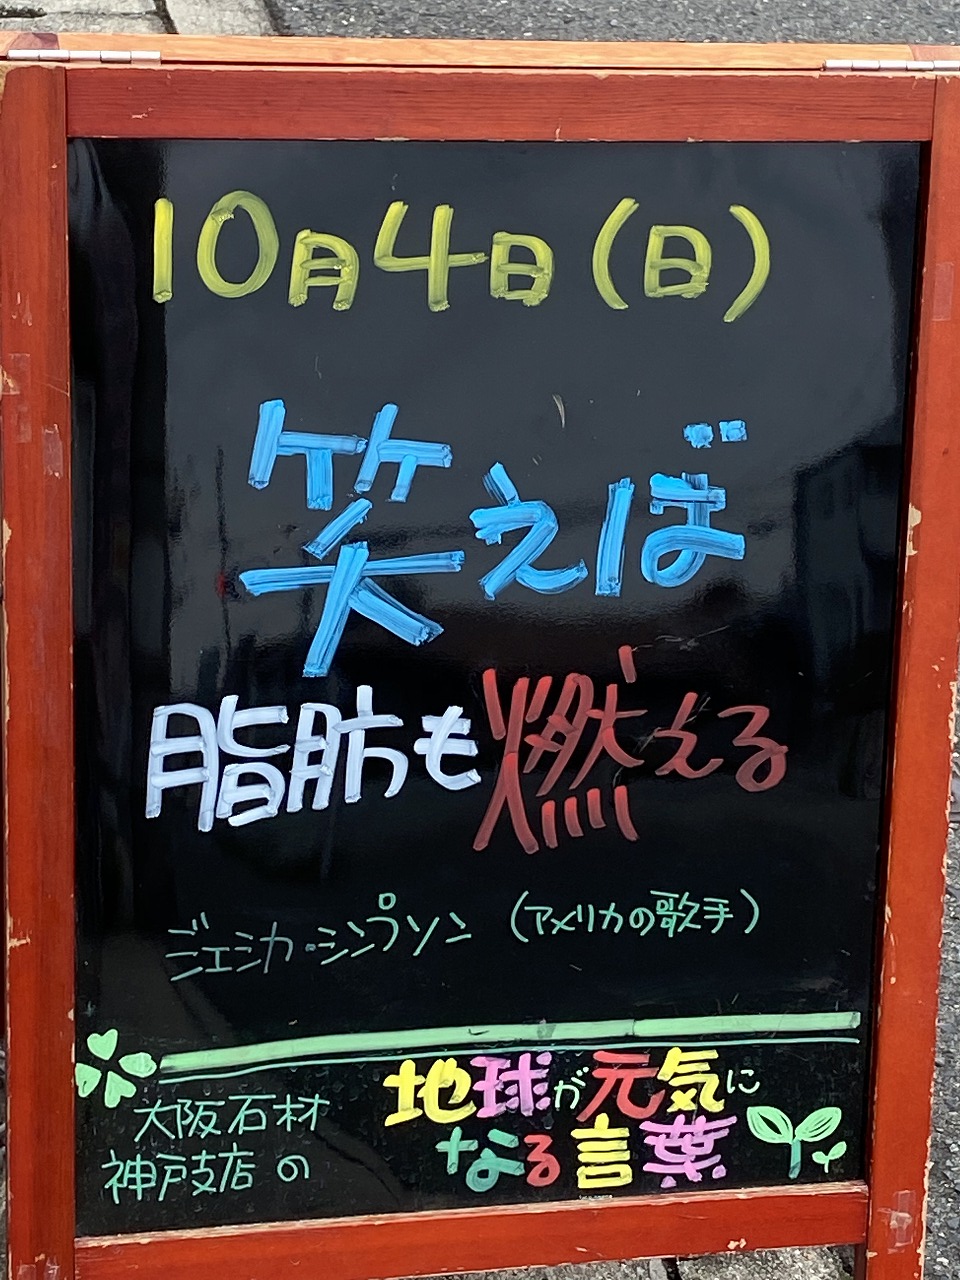 10月4日(日)
笑えば
脂肪も燃える
ジェシカ・シンプソン (アメリカの歌手)
大阪石材
神戸支店の
地球が元気に
なる言葉